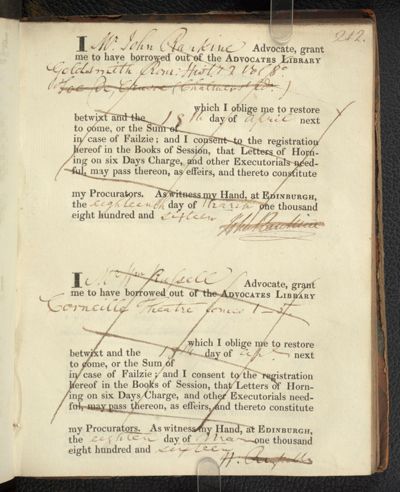 242.
I Mr. John Rankine Advocate, grant
me to have borrowed out of the ADVOCATES LIBRARY
Goldsmith Rom: Hist:
(Chalmers Edn.)
which I oblige me to restore
betwixt and the 18th day of april next
to come, or the Sum of
in case of Failzie; and I consent to the registration
hereof in the Books of Session, that Letters of Horn-
ing on six Days Charge, and other Executorials need-
ful, may pass thereon, as effeirs, and thereto constitute
my Procurators. As witness my Hand, at EDINBURGH,
the eighteenth day of March one thousand
eight hundred and sixteen
John Rankine
I Mr Wm Russell Advocate, grant
me to have borrowed out of the ADVOCATES LIBRARY
Corneille Theatre tomes 1
which I oblige me to restore
betwixt and the 18th day of ap: next
to come, or the Sum of
in case of Failzie; and I consent to the registration
hereof in the Books of Session, that Letters of Horn-
ing on six Days Charge, and other Executorials need-
ful, may pass thereon, as effeirs, and thereto constitute
my Procurators. As witness my Hand, at EDINBURGH,
the day of one thousand
eight hundred and sixteen
W. Russell